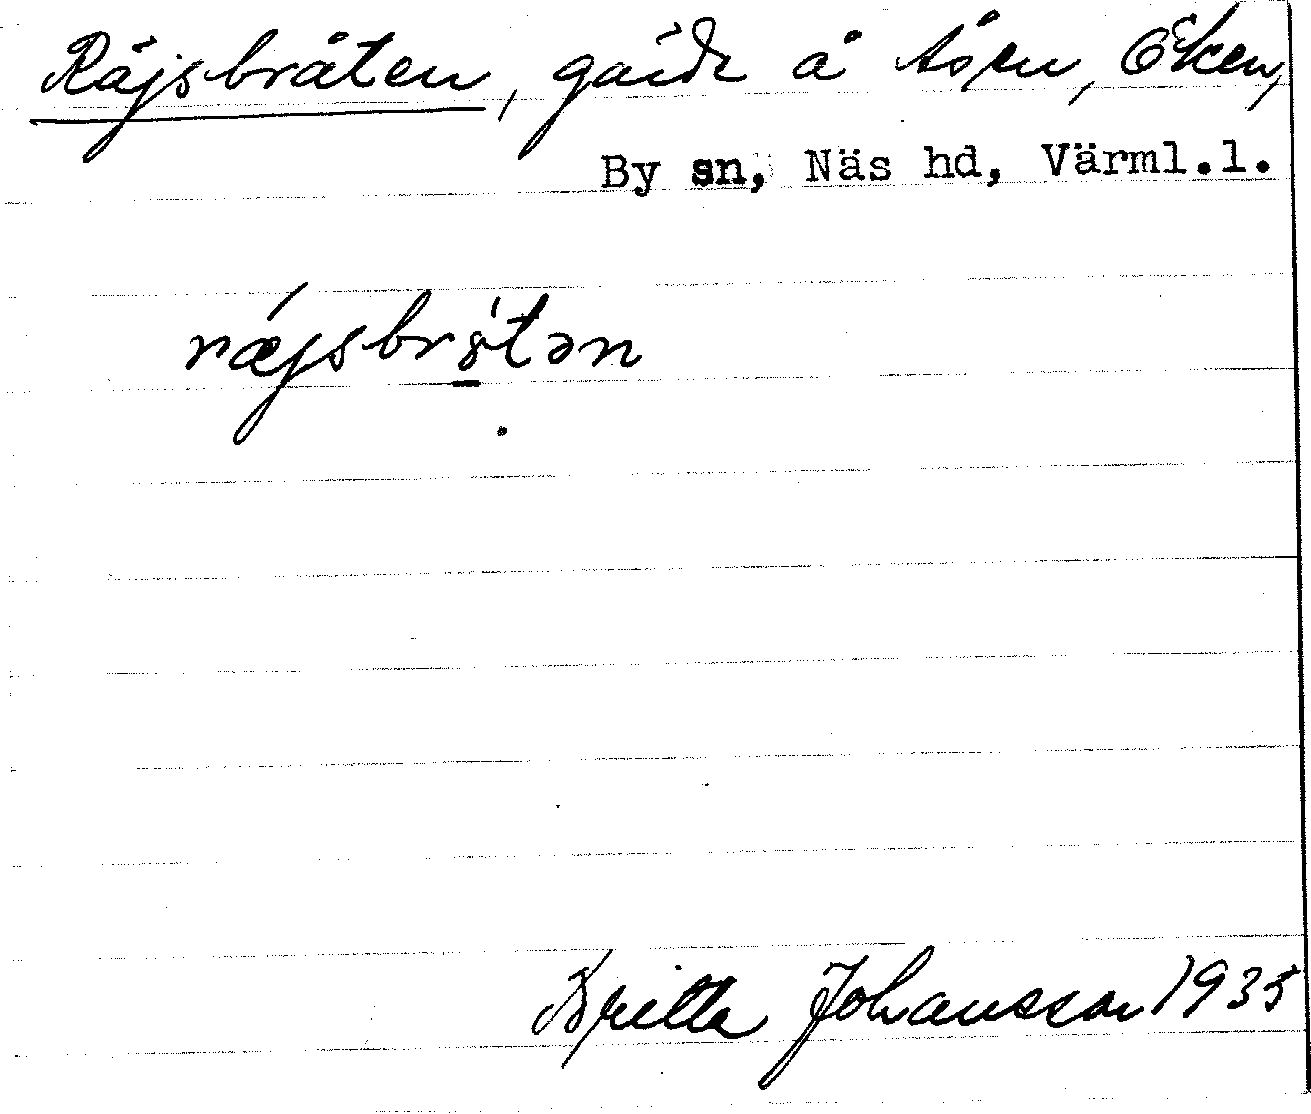 Räjsbråten, gärde å Åsen, Eken,
By sn, Näs hd, Värml.l.
ræjsbrötən
Britta Johansson 1935